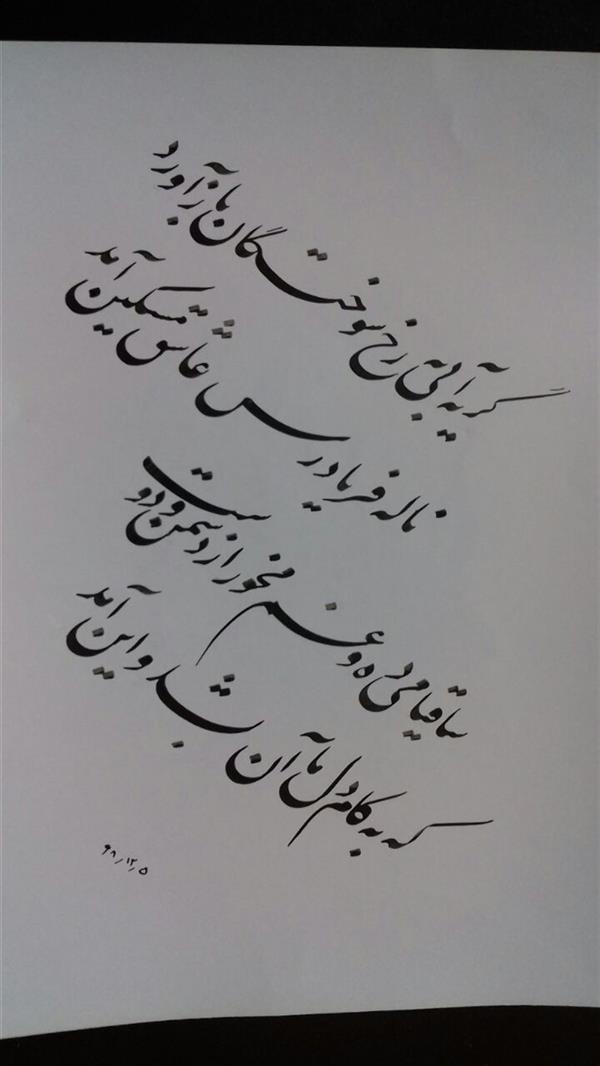 گریه آبی به رخ سوختگان باز آورد
ناله فریادرس عاشق مسکین آمد
ساقیا می بده و غم مخور از دشمن و دوست
که به کام دل ما آن بشد و این آمد
۹۸٫۱۲٫۵